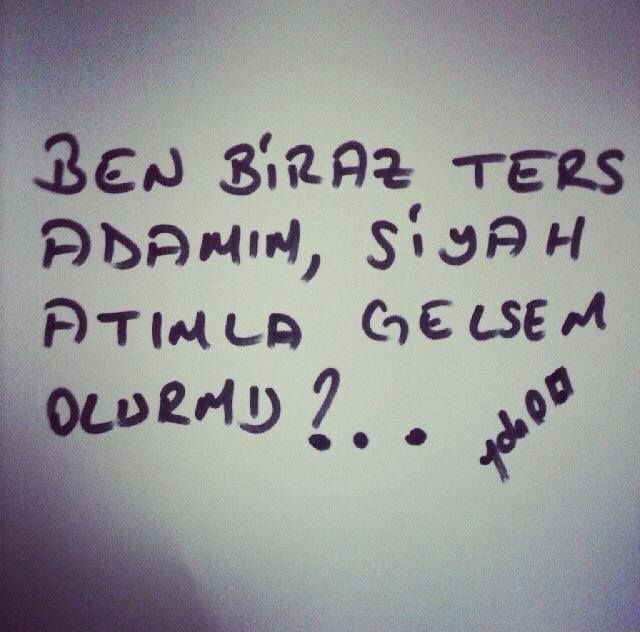 BEN BİRAZ TERS
ADAMIM, SİYAH
ATIMLA GELSEM
OLURMU?...